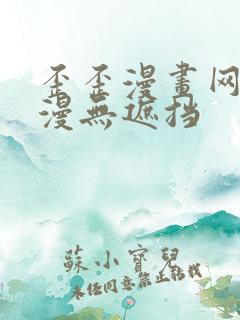 歪歪漫畫网
漫無遮挡
蘇小寶兒
未任同意禁止转载